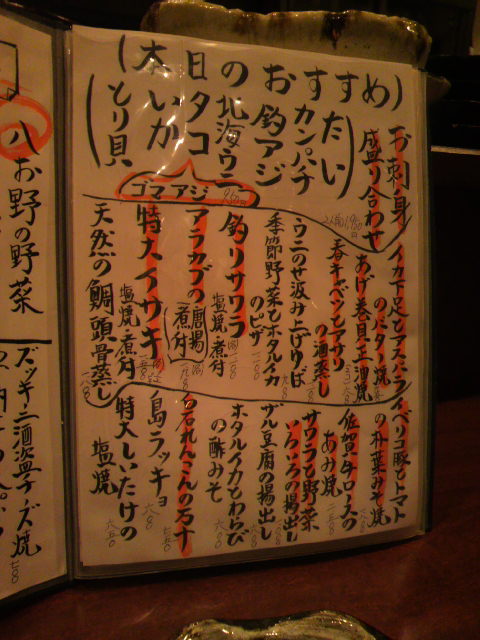 (本日のおすすめ)
お刺身
盛り合わせ
2人前1,960円
たい
カンパチ
釣アジ
北海ウニ
タコ
いか
とり貝
ゴマアジ
960円
イカ下足とアスパラ
のバター焼
あげ巻貝の正油焼
春キャベツとアサリ
の酒蒸し
ウニのせ汲み上げゆば
季節野菜とホタルイカ
のピザ
釣りサワラ
塩焼 煮付
アラカブの唐揚
煮付
特大イサキ
塩焼・煮付
天然の鯛頭骨蒸し
イベリコ豚とトマト
の朴葉みそ焼
佐賀牛ロースの
あみ焼
サワラと野菜
いろいろの揚出し
ザル豆腐の揚出し
ホタルイカとわらび
の酢みそ
白石れんこんの天ぷら
島ラッキョ
特大しいたけの
塩焼
六五〇
八お野の野菜
ズッキーニ酒盗チーズ焼
七〇〇